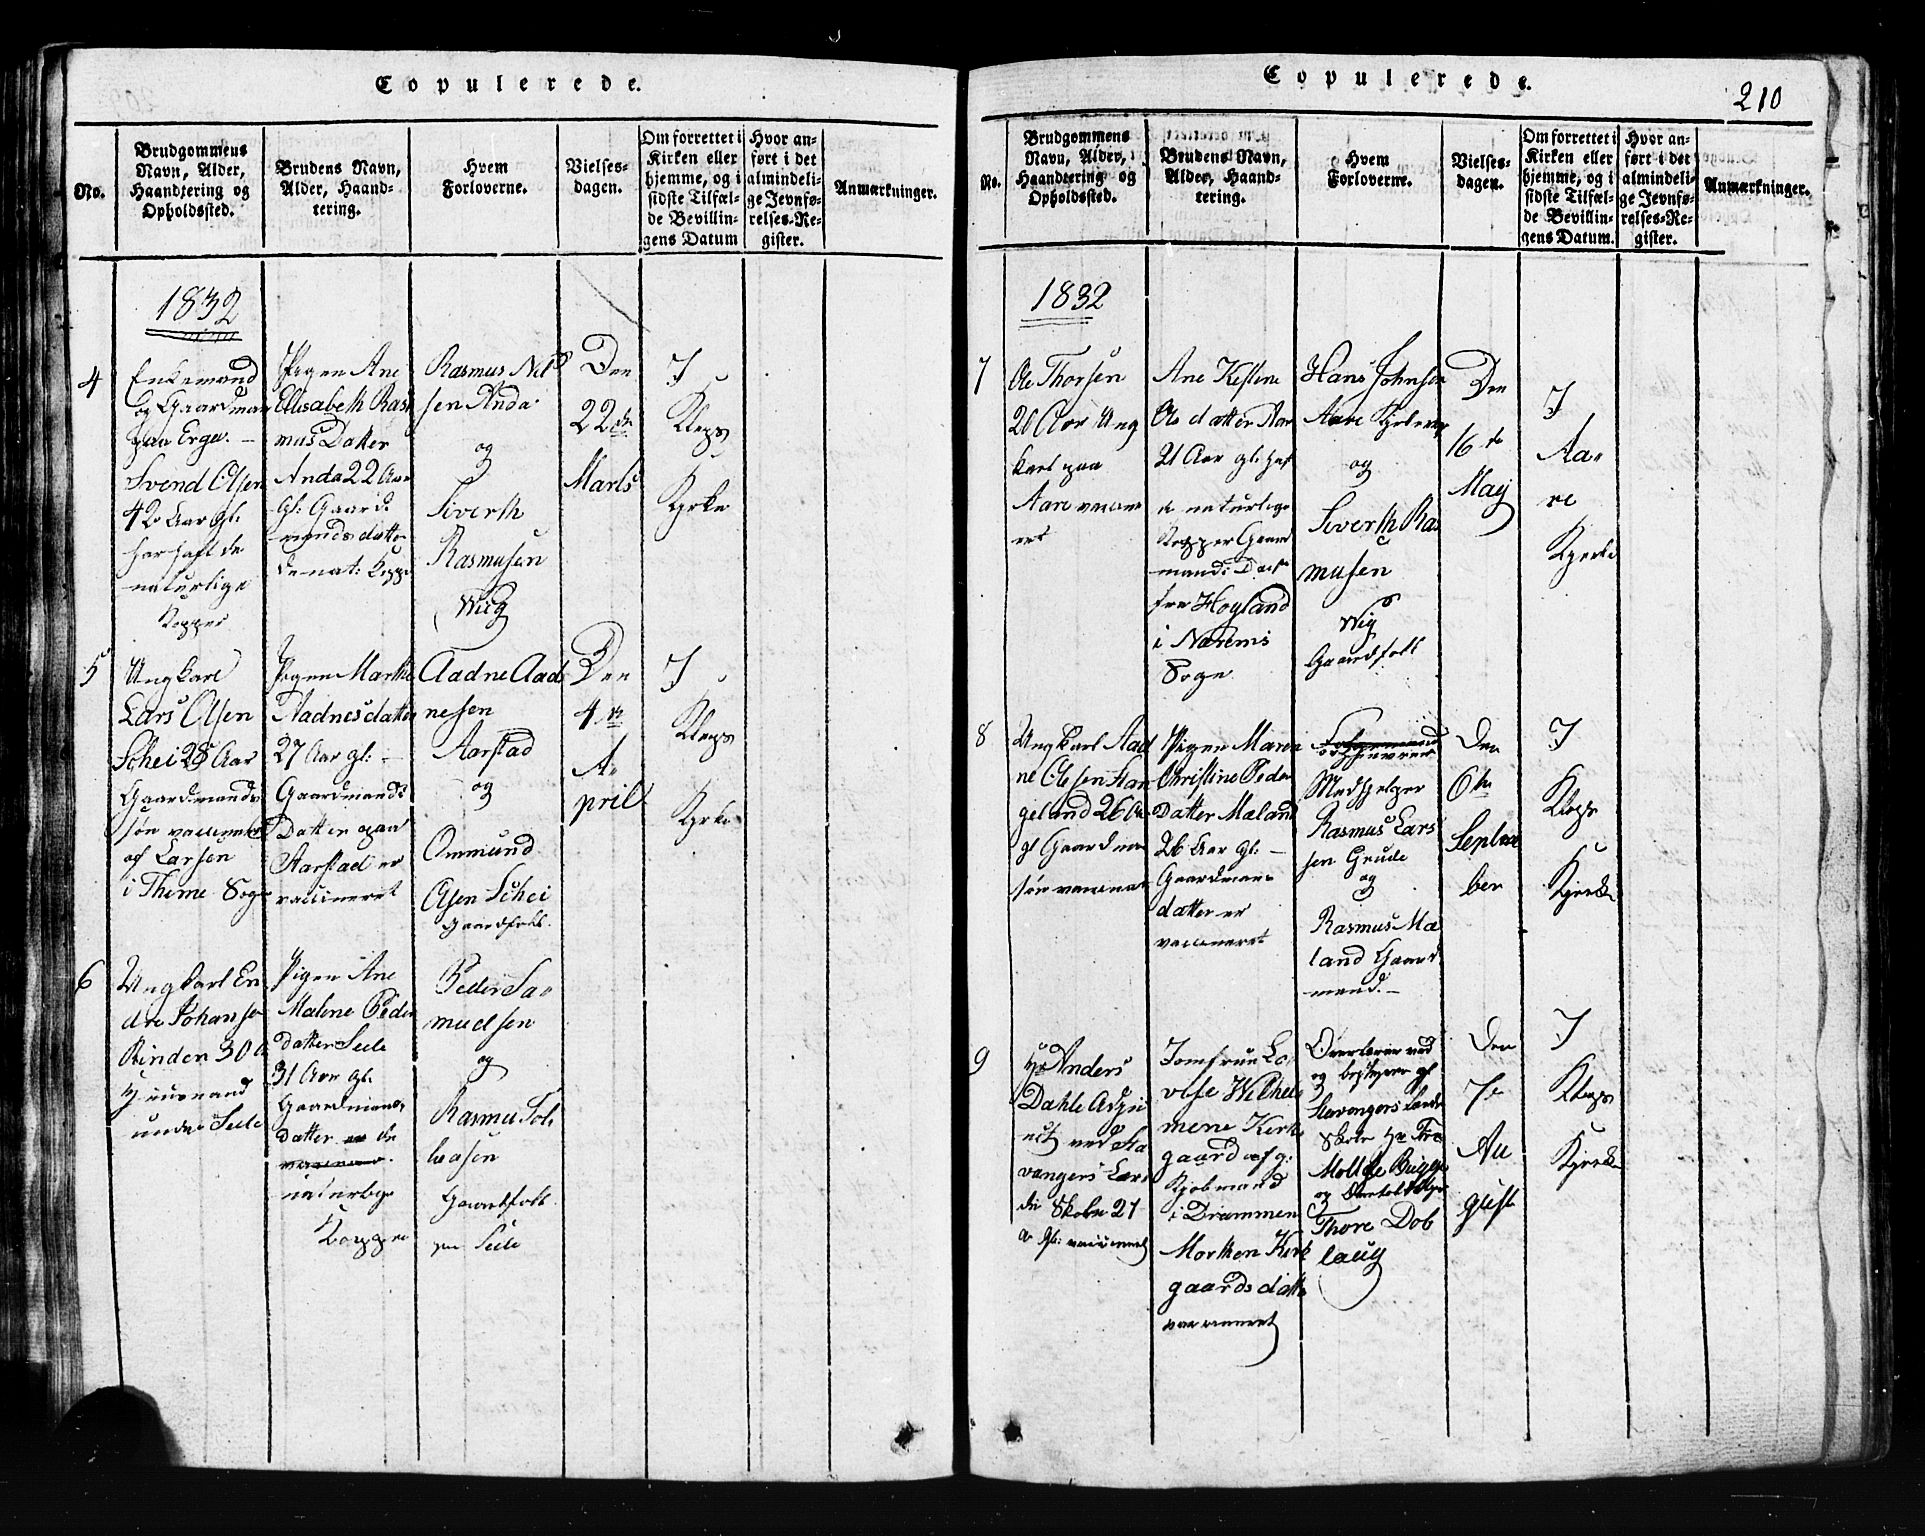 Copulerede.
No.
Brudgommens
Navn, Alder,
Haandtering og
Opholdssted.
Brudens Navn,
Alder, Haand-
tering.
Hvem
Forloverne.
Vielses-
dagen.
Om forrettet i
Kirken eller
hjemme, og i
sidste Tilfæl-
de Bevillin-
gens Datum
Hvor an-
ført i det
almindeli-
ge Jevnfø-
relses-Re-
gister.
Anmærkninger.
1832
4
Enkemand
og Gaardman
paa Erga. -
Svend Olsen
42 Aar gl:
har haft de
naturlige
Kopper
Pigen Ane
Elisabeth Ras
mus Datter
Anda 22 Aar
gl: Gaard
mands datter
de nat: Kopp
Rasmus Nil
sen Anda
og
Siverth
Rasmusen
Wiig
Den
22de
Marts
I
Kleps
Kyrke
5
Ungkarl
Lars Olsen
Schei 28 Aar
Gaardmands
søn vaccineret
af Larsen
i Thime Sogn
Pigen Marthe
Aadnesdatter
27 Aar gl: -
Gaardmands
Datter paa
Aarstad er
vaccineret
Aadne Aad
nesen
Aarstad
og
Ommund
Olsen Schei
Gaardfolk.
Den
4de
A-
pril
I
Kleps
Kyrke
6
Ungkarl En
dre Johansen
Rinden 30 A
Huusmand
under Seele
Pigen Ane
Malene Peder
datter Seele
31 Aar gl:
Gaardmans
datter er de
naturlige
Kopper
Peder Sa-
muelsen
og
Rasmus Tol
leasen
Gaardfolk
paa Seele
Copulerede.
210
No.
Brudgommens
Navn, Alder,
Haandtering og
Opholdssted.
Brudens Navn,
Alder, Haand-
tering.
Hvem
Forloverne.
Vielses-
dagen.
Om forrettet i
Kirken eller
hjemme, og i
sidste Tilfæl-
de Bevillin-
gens Datum.
Hvor an-
ført i det
almindeli-
ge Jevnfø-
relses-Re-
gister.
Anmærkninger.
1832
7
Ole Thorsen
26 Aar Ung
karl paa
Aare vaccine
ret
Ane Kestine
Ols datter Aar
21 Aar gl: haf
naturlige
Kopper Gaard
mands Datter
fra Hogland
i Nærems
Sogn
Hans Johnsen
Aare
og
Siverth Ras
musen
Wig
Gaardfolk
Den
16de
May
I
Aa-
re
Kyrke
8
Ungkarl Aad
ne Olesen Han
geland 26 Aar
gl Gaardman
søn vaccineret
Pigen Maren
Christine Peder
Datter Mæland
26 Aar gl: -
Gaardmans
datter er
vaccineret
Medhjelper
Rasmus Lars
sen Grude
og
Rasmus Mæ
land Gaard
mænd. -
Den
6te
Septem
ber
I
Kleps
Kyrke
9
Hr Anders
Dahle Adju
nct ved Sta
vangers Lær
de Skole 27
Aar gl: vaccineret
Jomfrue Lo
vise Wilhel
mene Kirke
gaard af g:
Kjøbmand
i Drammen
Morten Kirk
gaards datter
vaccineret
Overlærer ved
og bestyrer af
Stavangers lærde
Skole Hr Fre
Moltke Bugge
og
Thore Dob
laug
Den
7de
Au
gust
I
Kleps
Kyrke